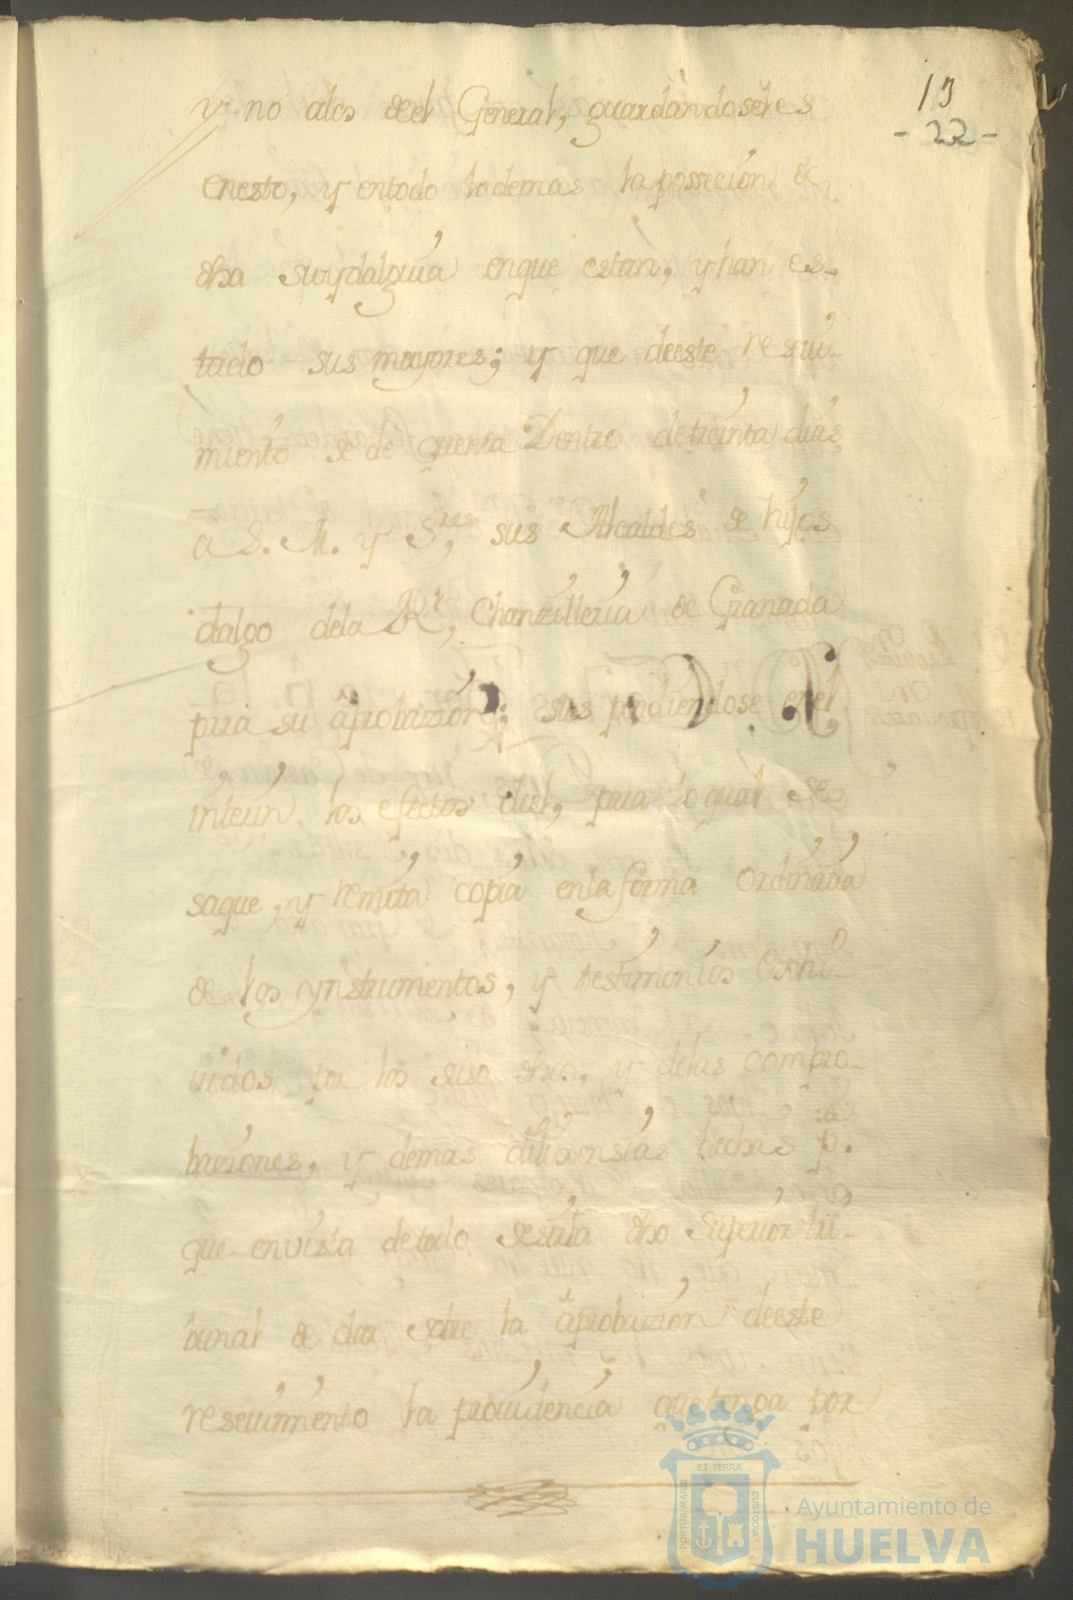 13
- 22 -
y no alos deel General, guardandoseles
enesto, y entodo lodemas la possecion de
dha suydalguia enque estan, y han es-
tado sus mayores; y que deeste reseui-
miento se de quenta Dentro detreinta dias
à S. M. y S.res, sus Alcaldes de hijos
dalgo dela Rl, Chanzilleria de Granada
para su aprobazion; suspendiendose enel
interin los efectos deel, para lo qual se
saque, y remita copia enla forma ordinaria
de los ynstrumentos, y testimonios exhi-
uidos por los suso dhos, y delas compro-
baziones, y demas dilixensias hechas p.
que envista detodo sesirba dho Superior tri-
bunal de dar sobre la aprobazion deeste
reseuimiento la prouidencia quetenga por
PORTUS MARIS
ET TERRÆ
CUSTODIA
Ayuntamiento de
HUELVA